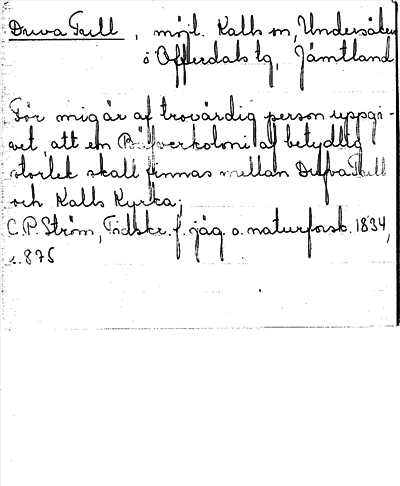 Druva Fjäll, möjl. Kalls sn, Undersåkers
o Offerdals tg, Jämtland
För mig är af trovärdig person uppgi-
vet, att en Bäfverkoloni af betydlig
storlek skall finnas mellan Dufva Fjäll
och Kalls Kyrka;
C.P. Ström, Tidskr. f. jäg. o. naturforsk. 1834,
s. 875